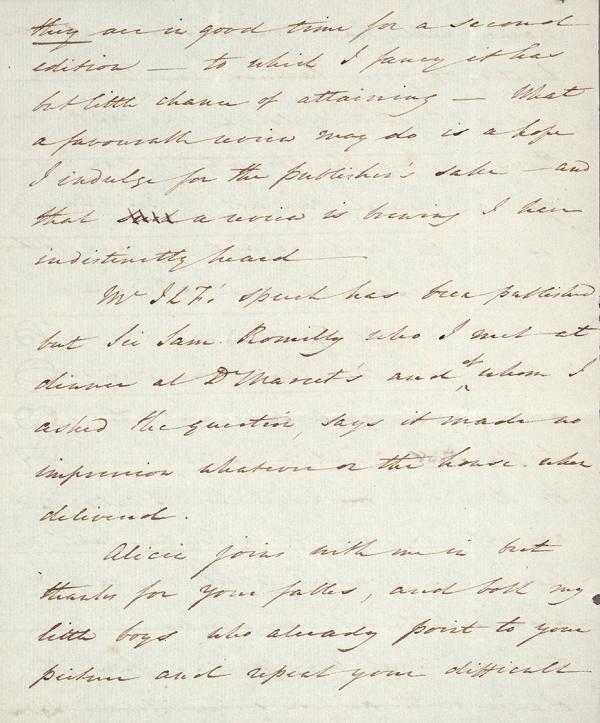 they are in good time for a second
edition — to which I fancy it has
but little chance of attaining — What
a favourable review may do is a hope
I indulge for the publisher's sake — and
that a review is brewing I have
indistinctly heard —
Mr J L F's speech has been published
but Sir Sam. Romilly who I met at
dinner at Dr Marcet's and of whom I
asked the question, says it made no
impression whatever on the house when
delivered.
Alicia joins with me in best
thanks for your fables, and both my
little boys who already point to your
picture and repeat your difficult